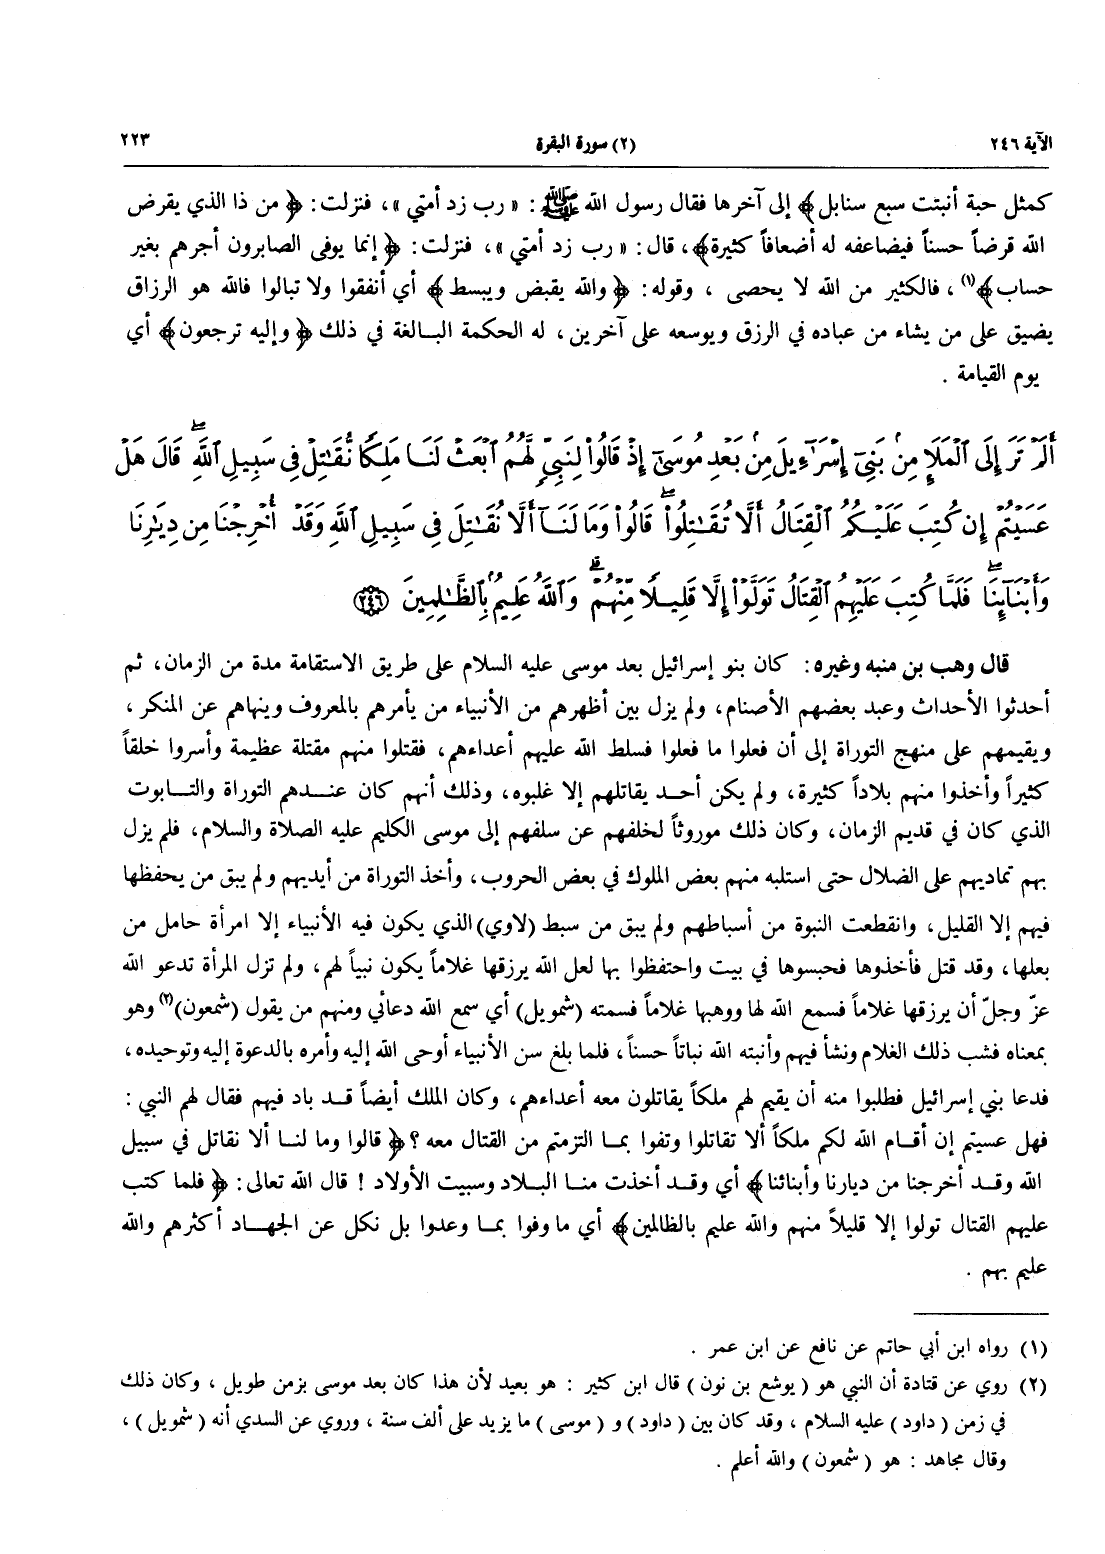 الآية ٢٤٦ (٢) سورة البقرة ٢٢٣
كمثل حبة أنبتت سبع سنابل﴾ إلى آخرها فقال رسول الله ﷺ: « رب زد أمتي »، فنزلت: ﴿ من ذا الذي يقرض
الله قرضاً حسناً فيضاعفه له أضعافاً كثيرة﴾، قال: « رب زد أمتي »، فنزلت: ﴿ إنما يوفى الصابرون أجرهم بغير
حساب﴾(١) ، فالكثير من الله لا يحصى ، وقوله: ﴿ والله يقبض ويبسط﴾ أي أنفقوا ولا تبالوا فالله هو الرزاق
يضيق على من يشاء من عباده في الرزق ويوسعه على آخرين، له الحكمة البالغة في ذلك ﴿ وإليه ترجعون﴾ أي
يوم القيامة .
أَلَمْ تَرَ إِلَى ٱلْمَلَإِ مِنۢ بَنِىٓ إِسْرَٰٓءِيلَ مِنۢ بَعْدِ مُوسَىٰٓ إِذْ قَالُوا۟ لِنَبِىٍّ لَّهُمُ ٱبْعَثْ لَنَا مَلِكًا نُّقَٰتِلْ فِى سَبِيلِ ٱللَّهِ ۖ قَالَ هَلْ
عَسَيْتُمْ إِن كُتِبَ عَلَيْكُمُ ٱلْقِتَالُ أَلَّا تُقَٰتِلُوا۟ ۖ قَالُوا۟ وَمَا لَنَآ أَلَّا نُقَٰتِلَ فِى سَبِيلِ ٱللَّهِ وَقَدْ أُخْرِجْنَا مِن دِيَٰرِنَا
وَأَبْنَآئِنَا ۖ فَلَمَّا كُتِبَ عَلَيْهِمُ ٱلْقِتَالُ تَوَلَّوْا۟ إِلَّا قَلِيلًا مِّنْهُمْ ۗ وَٱللَّهُ عَلِيمٌۢ بِٱلظَّٰلِمِينَ ﴿٢٤٦﴾
قال وهب بن منبه وغيره: كان بنو إسرائيل بعد موسى عليه السلام على طريق الاستقامة مدة من الزمان، ثم
أحدثوا الأحداث وعبد بعضهم الأصنام، ولم يزل بين أظهرهم من الأنبياء من يأمرهم بالمعروف وينهاهم عن المنكر ،
ويقيمهم على منهج التوراة إلى أن فعلوا ما فعلوا فسلط الله عليهم أعداءهم، فقتلوا منهم مقتلة عظيمة وأسروا خلقاً
كثيراً وأخذوا منهم بلاداً كثيرة، ولم يكن أحد يقاتلهم إلا غلبوه، وذلك أنهم كان عندهم التوراة والتابوت
الذي كان في قديم الزمان، وكان ذلك موروثاً لخلفهم عن سلفهم إلى موسى الكليم عليه الصلاة والسلام، فلم يزل
بهم تماديهم على الضلال حتى استلبه منهم بعض الملوك في بعض الحروب، وأخذ التوراة من أيديهم ولم يبق من يحفظها
فيهم إلا القليل، وانقطعت النبوة من أسباطهم ولم يبق من سبط (لاوي) الذي يكون فيه الأنبياء إلا امرأة حامل من
بعلها، وقد قتل فأخذوها فحبسوها في بيت واحتفظوا بها لعل الله يرزقها غلاماً يكون نبياً لهم، ولم تزل المرأة تدعو الله
عزّ وجلّ أن يرزقها غلاماً فسمع الله لها ووهبها غلاماً فسمته (شمويل) أي سمع الله دعائي ومنهم من يقول (شمعون)(٢) وهو
بمعناه فشب ذلك الغلام ونشأ فيهم وأنبته الله نباتاً حسناً، فلما بلغ سن الأنبياء أوحى الله إليه وأمره بالدعوة إليه وتوحيده،
فدعا بني إسرائيل فطلبوا منه أن يقيم لهم ملكاً يقاتلون معه أعداءهم، وكان الملك أيضاً قد باد فيهم فقال لهم النبي :
فهل عسيتم إن أقام الله لكم ملكاً ألا تقاتلوا وتفوا بما التزمتم من القتال معه ؟ ﴿ قالوا وما لنا ألا نقاتل في سبيل
الله وقد أخرجنا من ديارنا وأبنائنا﴾ أي وقد أخذت منا البلاد وسبيت الأولاد ! قال الله تعالى: ﴿ فلما كتب
عليهم القتال تولوا إلا قليلاً منهم والله عليم بالظالمين﴾ أي ما وفوا بما وعدوا بل نكل عن الجهاد أكثرهم والله
عليم بهم .
(١) رواه ابن أبي حاتم عن نافع عن ابن عمر .
(٢) روي عن قتادة أن النبي هو ( يوشع بن نون ) قال ابن كثير : هو بعيد لأن هذا كان بعد موسى بزمن طويل ، وكان ذلك
في زمن ( داود ) عليه السلام ، وقد كان بين ( داود ) و ( موسى ) ما يزيد على ألف سنة ، وروي عن السدي أنه ( شمويل ) ،
وقال مجاهد : هو ( شمعون ) والله أعلم .